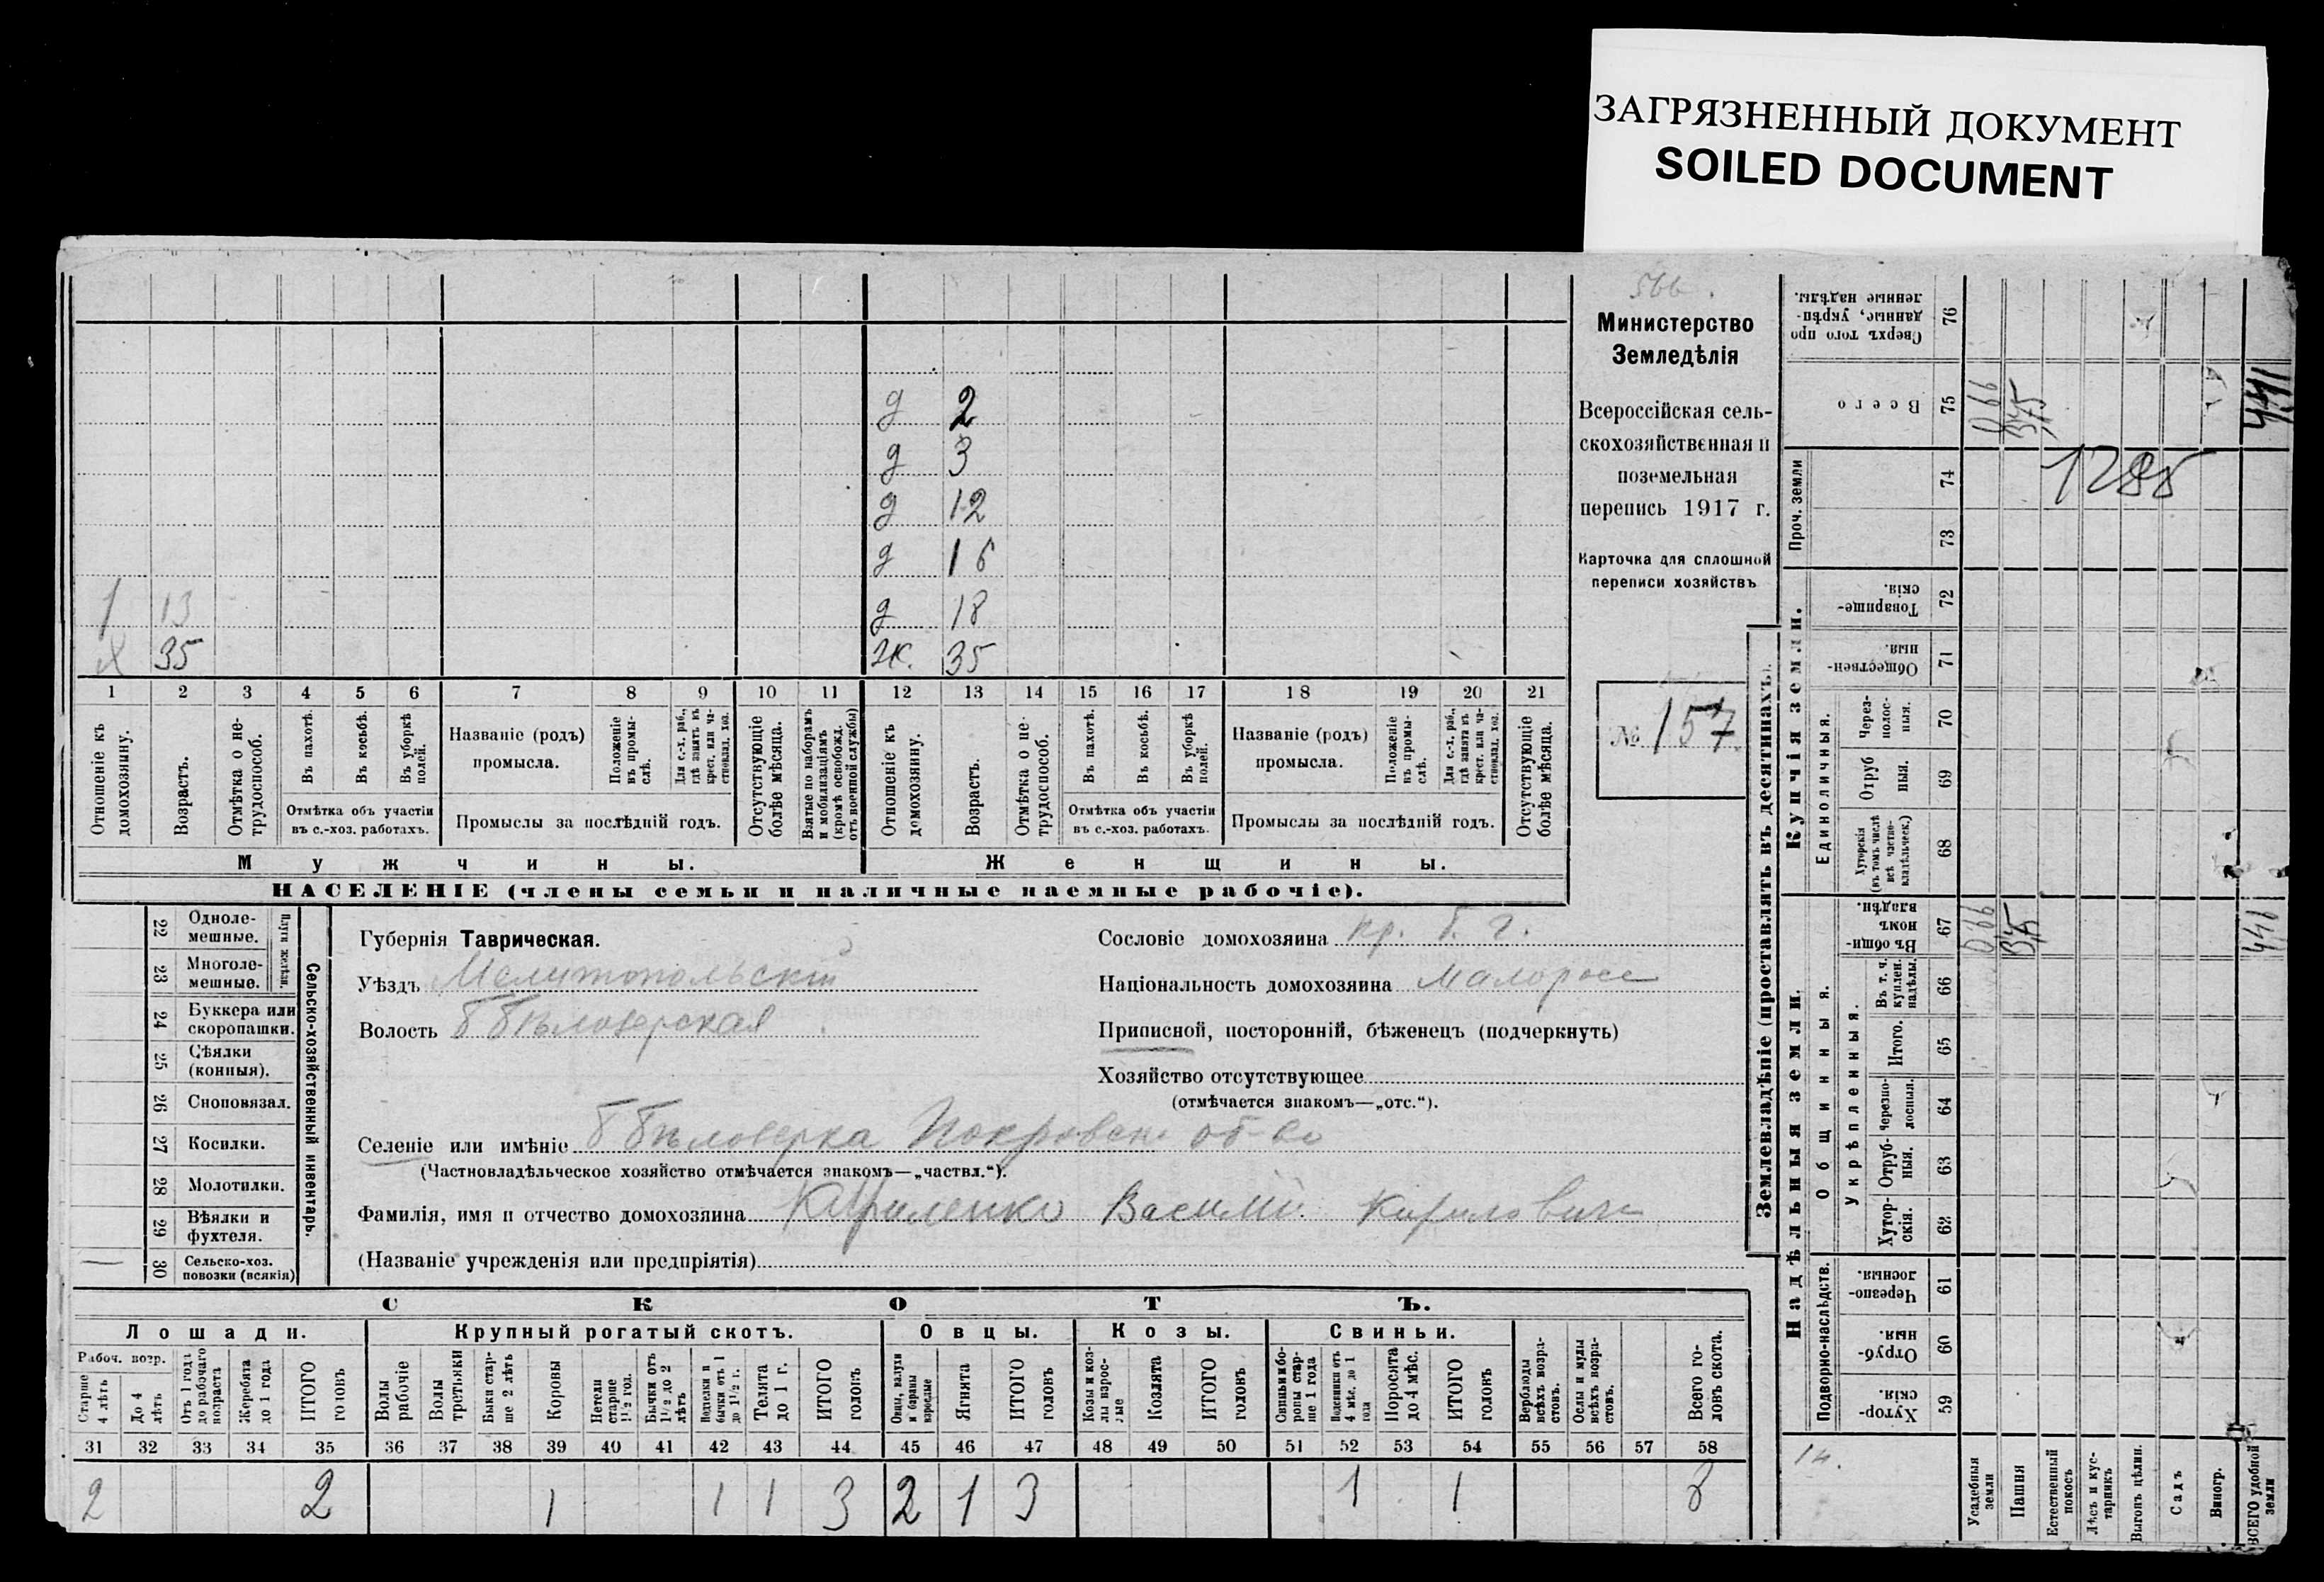 ЗАГРЯЗНЕННЫЙ ДОКУМЕНТ
SOILED DOCUMENT
566.
Министерство
Земледѣлія
Всероссійская сель-
скохозяйственная и
поземельная
перепись 1917 г.
Карточка для сплошной
переписи хозяйствъ
№ 157
д 2
д 3
д 12
д 16
1 13 д 18
х 35 ж. 35
1 2 3 4 5 6 7 8 9 10 11 12 13 14 15 16 17 18 19 20 21
Отношеніе къ домохозяину.
Возрастъ.
Отмѣтка о не-трудоспособ.
Въ пахотѣ.
Въ косьбѣ.
Въ уборкѣ полей.
Отмѣтка объ участіи
въ с.-хоз. работахъ.
Названіе (родъ)
промысла.
Положеніе въ промы-слѣ.
Для с.-х. раб., гдѣ занятъ въ крест. или ча-стновлад. хоз.
Промыслы за послѣдній годъ.
Отсутствующіе болѣе мѣсяца.
Взятые по наборамъ и мобилизаціямъ (кромѣ освобожд. отъ военной службы)
Отношеніе къ домохозяину.
Возрастъ.
Отмѣтка о не-трудоспособ.
Въ пахотѣ.
Въ косьбѣ.
Въ уборкѣ полей.
Отмѣтка объ участіи
въ с.-хоз. работахъ.
Названіе (родъ)
промысла.
Положеніе въ промы-слѣ.
Для с.-х. раб., гдѣ занята въ крест. или ча-стновлад. хоз.
Промыслы за послѣдній годъ.
Отсутствующіе болѣе мѣсяца.
Мужчины. Женщины.
НАСЕЛЕНІЕ (члены семьи и наличные наемные рабочіе).
Сельско-хозяйственный инвентарь.
Плуги желѣзн.
22 Одноле-мешные.
23 Многоле-мешные.
24 Буккера или скоропашки.
25 Сѣялки (конныя).
26 Сноповязал.
27 Косилки.
28 Молотилки.
29 Вѣялки и фухтеля.
30 Сельско-хоз. повозки (всякія) —
Губернія Таврическая.
Уѣздъ Мелитопольскій
Волость Б Бѣлозерская
Селеніе или имѣніе Б Бѣлозерка Покровск. об-во
(Частновладѣльческое хозяйство отмѣчается знакомъ—„частвл.“).
Фамилія, имя и отчество домохозяина Кириленко Василій Кириловичъ
(Названіе учрежденія или предпріятія)
Сословіе домохозяина кр. б. г.
Національность домохозяина Малоросс
Приписной, посторонній, бѣженецъ (подчеркнуть)
Хозяйство отсутствующее
(отмѣчается знакомъ—„отс.“).
СКОТЪ.
Лошади. Крупный рогатый скотъ. Овцы. Козы. Свиньи.
Рабоч. возр.
Старше 4 лѣтъ
До 4 лѣтъ
Отъ 1 года до рабочаго возраста
Жеребята до 1 года
ИТОГО головъ
Волы рабочіе
Волы третьяки
Быки стар-ше 2 лѣтъ
Коровы
Нетели старше 1½ год.
Бычки отъ 1½ до 2 лѣтъ
Подтелки и бычки отъ 1 до 1½ г.
Телята до 1 г.
ИТОГО головъ
Овцы, валухи и бараны взрослые
Ягнята
ИТОГО головъ
Козы и коз-лы взрос-лые
Козлята
ИТОГО головъ
Свиньи и бо-ровы стар-ше 1 года
Подсвинки отъ 4 мѣс. до 1 года
Поросята до 4 мѣс.
ИТОГО головъ
Верблюды всѣхъ возра-стовъ.
Ослы и мулы всѣхъ возра-стовъ.
Всего го-ловъ скота.
31 32 33 34 35 36 37 38 39 40 41 42 43 44 45 46 47 48 49 50 51 52 53 54 55 56 57 58
2 2 1 1 1 3 2 1 3 1 1 8
Землевладѣніе (проставлять въ десятинахъ).
Надѣльныя земли. Купчія земли. Проч. земли
Подворно-наслѣдств. Общинныя. Укрѣпленныя. Единоличныя.
Хутор-скія. 59
Отруб-ныя. 60
Черезпо-лосныя. 61
Хутор-скія. 62
Отруб-ныя. 63
Черезпо-лосныя. 64
Итого. 65
Въ т. ч. куплен. надѣлы. 66
Въ общин-номъ владѣн. 67
Хуторскія (въ томъ числѣ всѣ частно-владѣльческ.) 68
Отруб ныя. 69
Через-полос-ныя. 70
Обществен-ныя. 71
Товарище-скія. 72
73
74
Всего 75
Сверхъ того про данные, укрѣп-ленные надѣлы. 76
14.
Усадебныя земли 0,66 0,66
Пашня 3,75 3,75
Естественный покосъ
Лѣсъ и кус-тарникъ
Выгонъ цѣлин.
Садъ
Виногр.
ВСЕГО удобной земли 4,41 4,41
1285